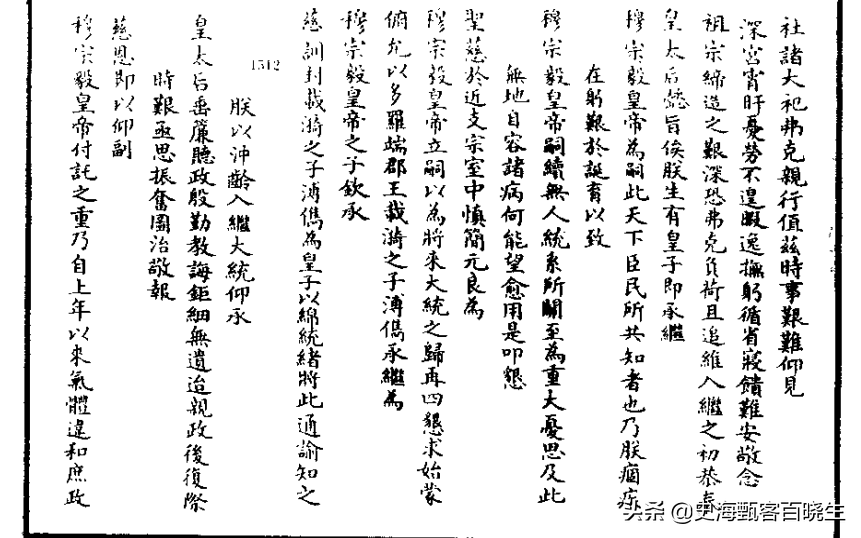 社諸大祀弗克親行值茲時事艱難仰見
深宮宵旰憂勞不遑暇逸撫躬循省寢饋難安敬念
祖宗締造之艱深恐弗克負荷且追維入繼之初恭奉
皇太后懿旨俟朕生有皇子即承繼
穆宗毅皇帝為嗣此天下臣民所共知者也乃朕痼疾
在躬艱於誕育以致
穆宗毅皇帝嗣續無人統系所關至為重大憂思及此
無地自容諸病何能望愈用是叩懇
聖慈於近支宗室中慎簡元良為
穆宗毅皇帝立嗣以為將來大統之歸再四懇求始蒙
俯允以多羅端郡王載漪之子溥儁承繼為
穆宗毅皇帝之子欽承
慈訓封載漪之子溥儁為皇子以綿統緒將此通諭知之
1312
朕以沖齡入繼大統仰承
皇太后垂簾聽政殷勤教誨鉅細無遺迨親政後復際
時艱亟思振奮圖治敬報
慈恩即以仰副
穆宗毅皇帝付託之重乃自上年以來氣體違和庶政
头条 @史海甄客百晓生